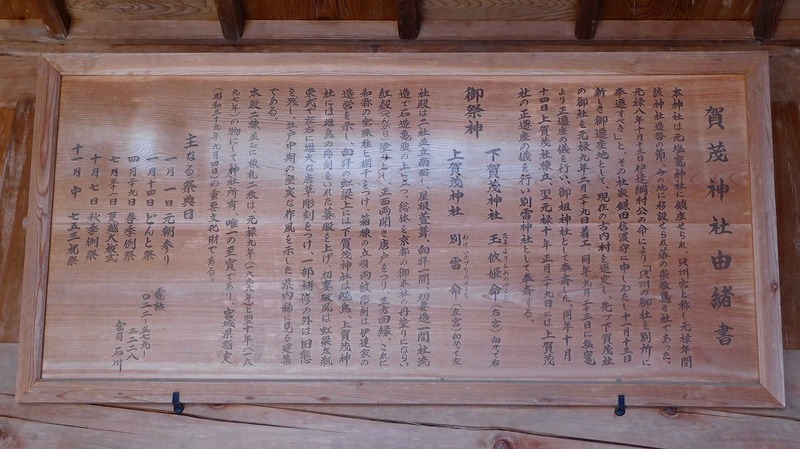 賀茂神社由緒書
本神社は元塩竈神社に鎮座せられ、只州宮と称し元禄年間
該神社造替の節、今の地に移設せられ
元禄八年十月十三日伊達綱村公の命により「只州の御社を別所に
奉遷すべき」と、その社家鎌田信濃守に申しわたし、十月十三日
新しき御遷座地として、現在の古内村を選定し、先づ下賀茂神社
の御社を元禄九年二月二十九日着工、同年九月二十三日に塩竈
より正遷座の儀を行い、御祖神社として奉斎した。同年十月
十四日上賀茂神社移立、翌元禄十年正月二十九日には上賀茂
社の正遷座の儀を行い別雷神社として奉斎する。
御祭神
下賀茂神社 玉依姫命(右宮)向かって右
たまよりひめのみこと
上賀茂神社 別雷命(左宮)向かって左
わけいかづちのみこと
社殿は二社並立南面し、屋根萱葺、向拝一間、切妻造一間社流
造で石造亀腹の上に立つ、総体を京都の御本社の丹塗りにならい
紅殻(べんがら)塗りとし、正面両開き唐戸をつり、三方回縁、これに
和様の宝珠柱と胡干とをつけ、箱棟の立羽両紋彫刻は伊達家の
造営を示し、向拝の虹梁上には下賀茂神社は
社には雄鳥の彫刻をいれた蟇股を上げ、切妻破風は虹梁太瓶
束式で左右に雄大な若草彫刻をつけ、一部補修の外は旧態
を残し、江戸中期の堅実な作風を示した県内稀に見る建築
である。
本殿二棟及び棟札二枚は、元禄九年(一六九六年)と同十年(一六
九七年)の物にして神社所有、唯一の至宝であり、宮城県指定
(昭和三十九年九月四日)の重要文化財である。
主なる祭典日
一月一日 元朝参り
一月十四日 どんと祭
四月二十九日 春季例祭
七月三十一日 夏越大祓式
十月七日 秋季例祭
十一月中 七五三祝祭
電話
〇二二-三七九-
二二二八
宮司 石川